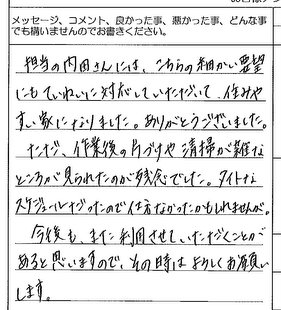 メッセージ、コメント、良かった事、悪かった事、どんな事
でも構いませんのでお書きください。
担当の内田さんには、こちらの細かい要望
にもていねいに対応していただけて、住みや
すい家になりました。ありがとうございました。
ただ、作業後の片づけや清掃が雑な
ところが見られたのが残念でした。タイトな
スケジュールだったので仕方なかったかもしれませんが。
今後も、また利用させていただくことが
あると思いますので、その時はよろしくお願い
します。